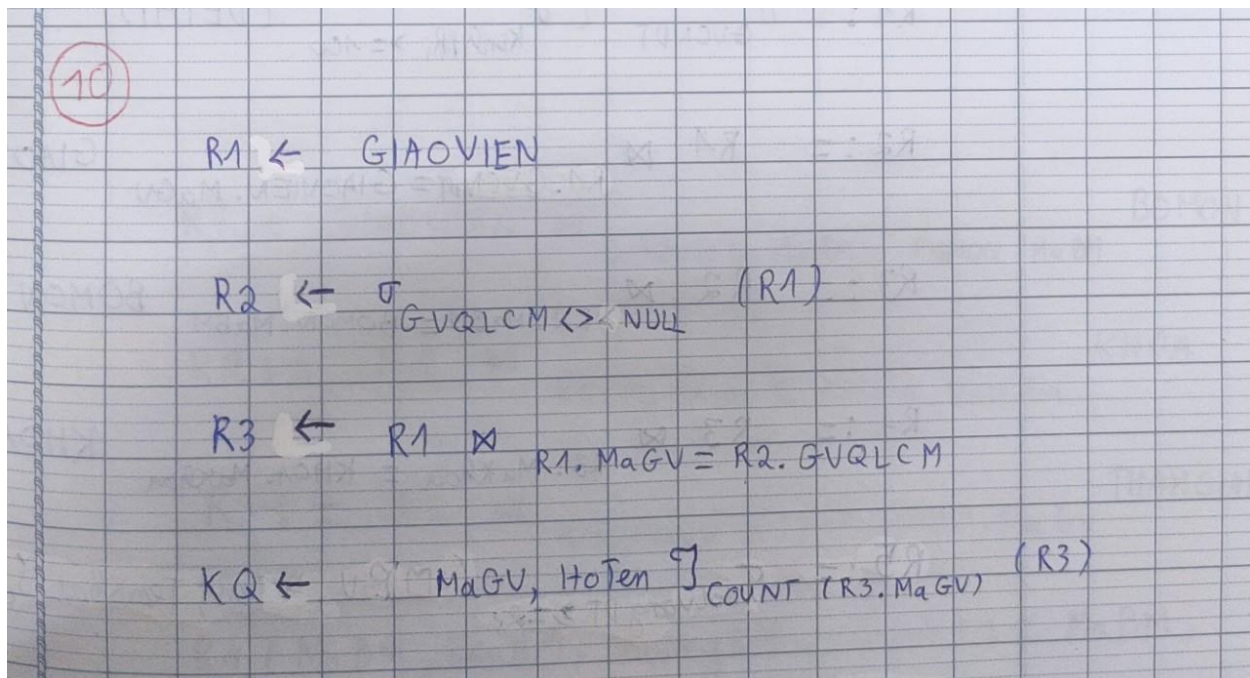 10
R1 ← GIAOVIEN
R2 ← σ GVQLCM <> NULL (R1)
R3 ← R1 ⋈ R1.MaGV = R2.GVQLCM
KQ ← MaGV, HoTen ℑ COUNT (R3.MaGV) (R3)